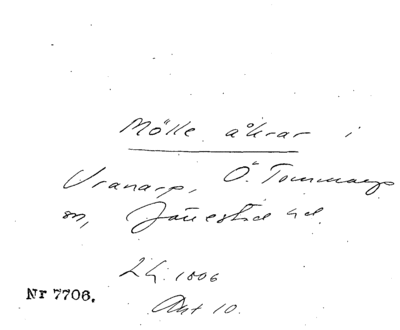 Mölle åkrar i
Vranarp, Ö. Tommarps
sn, Järrestad hd.
LG. 1806
Akt 10.
Nr 7706.